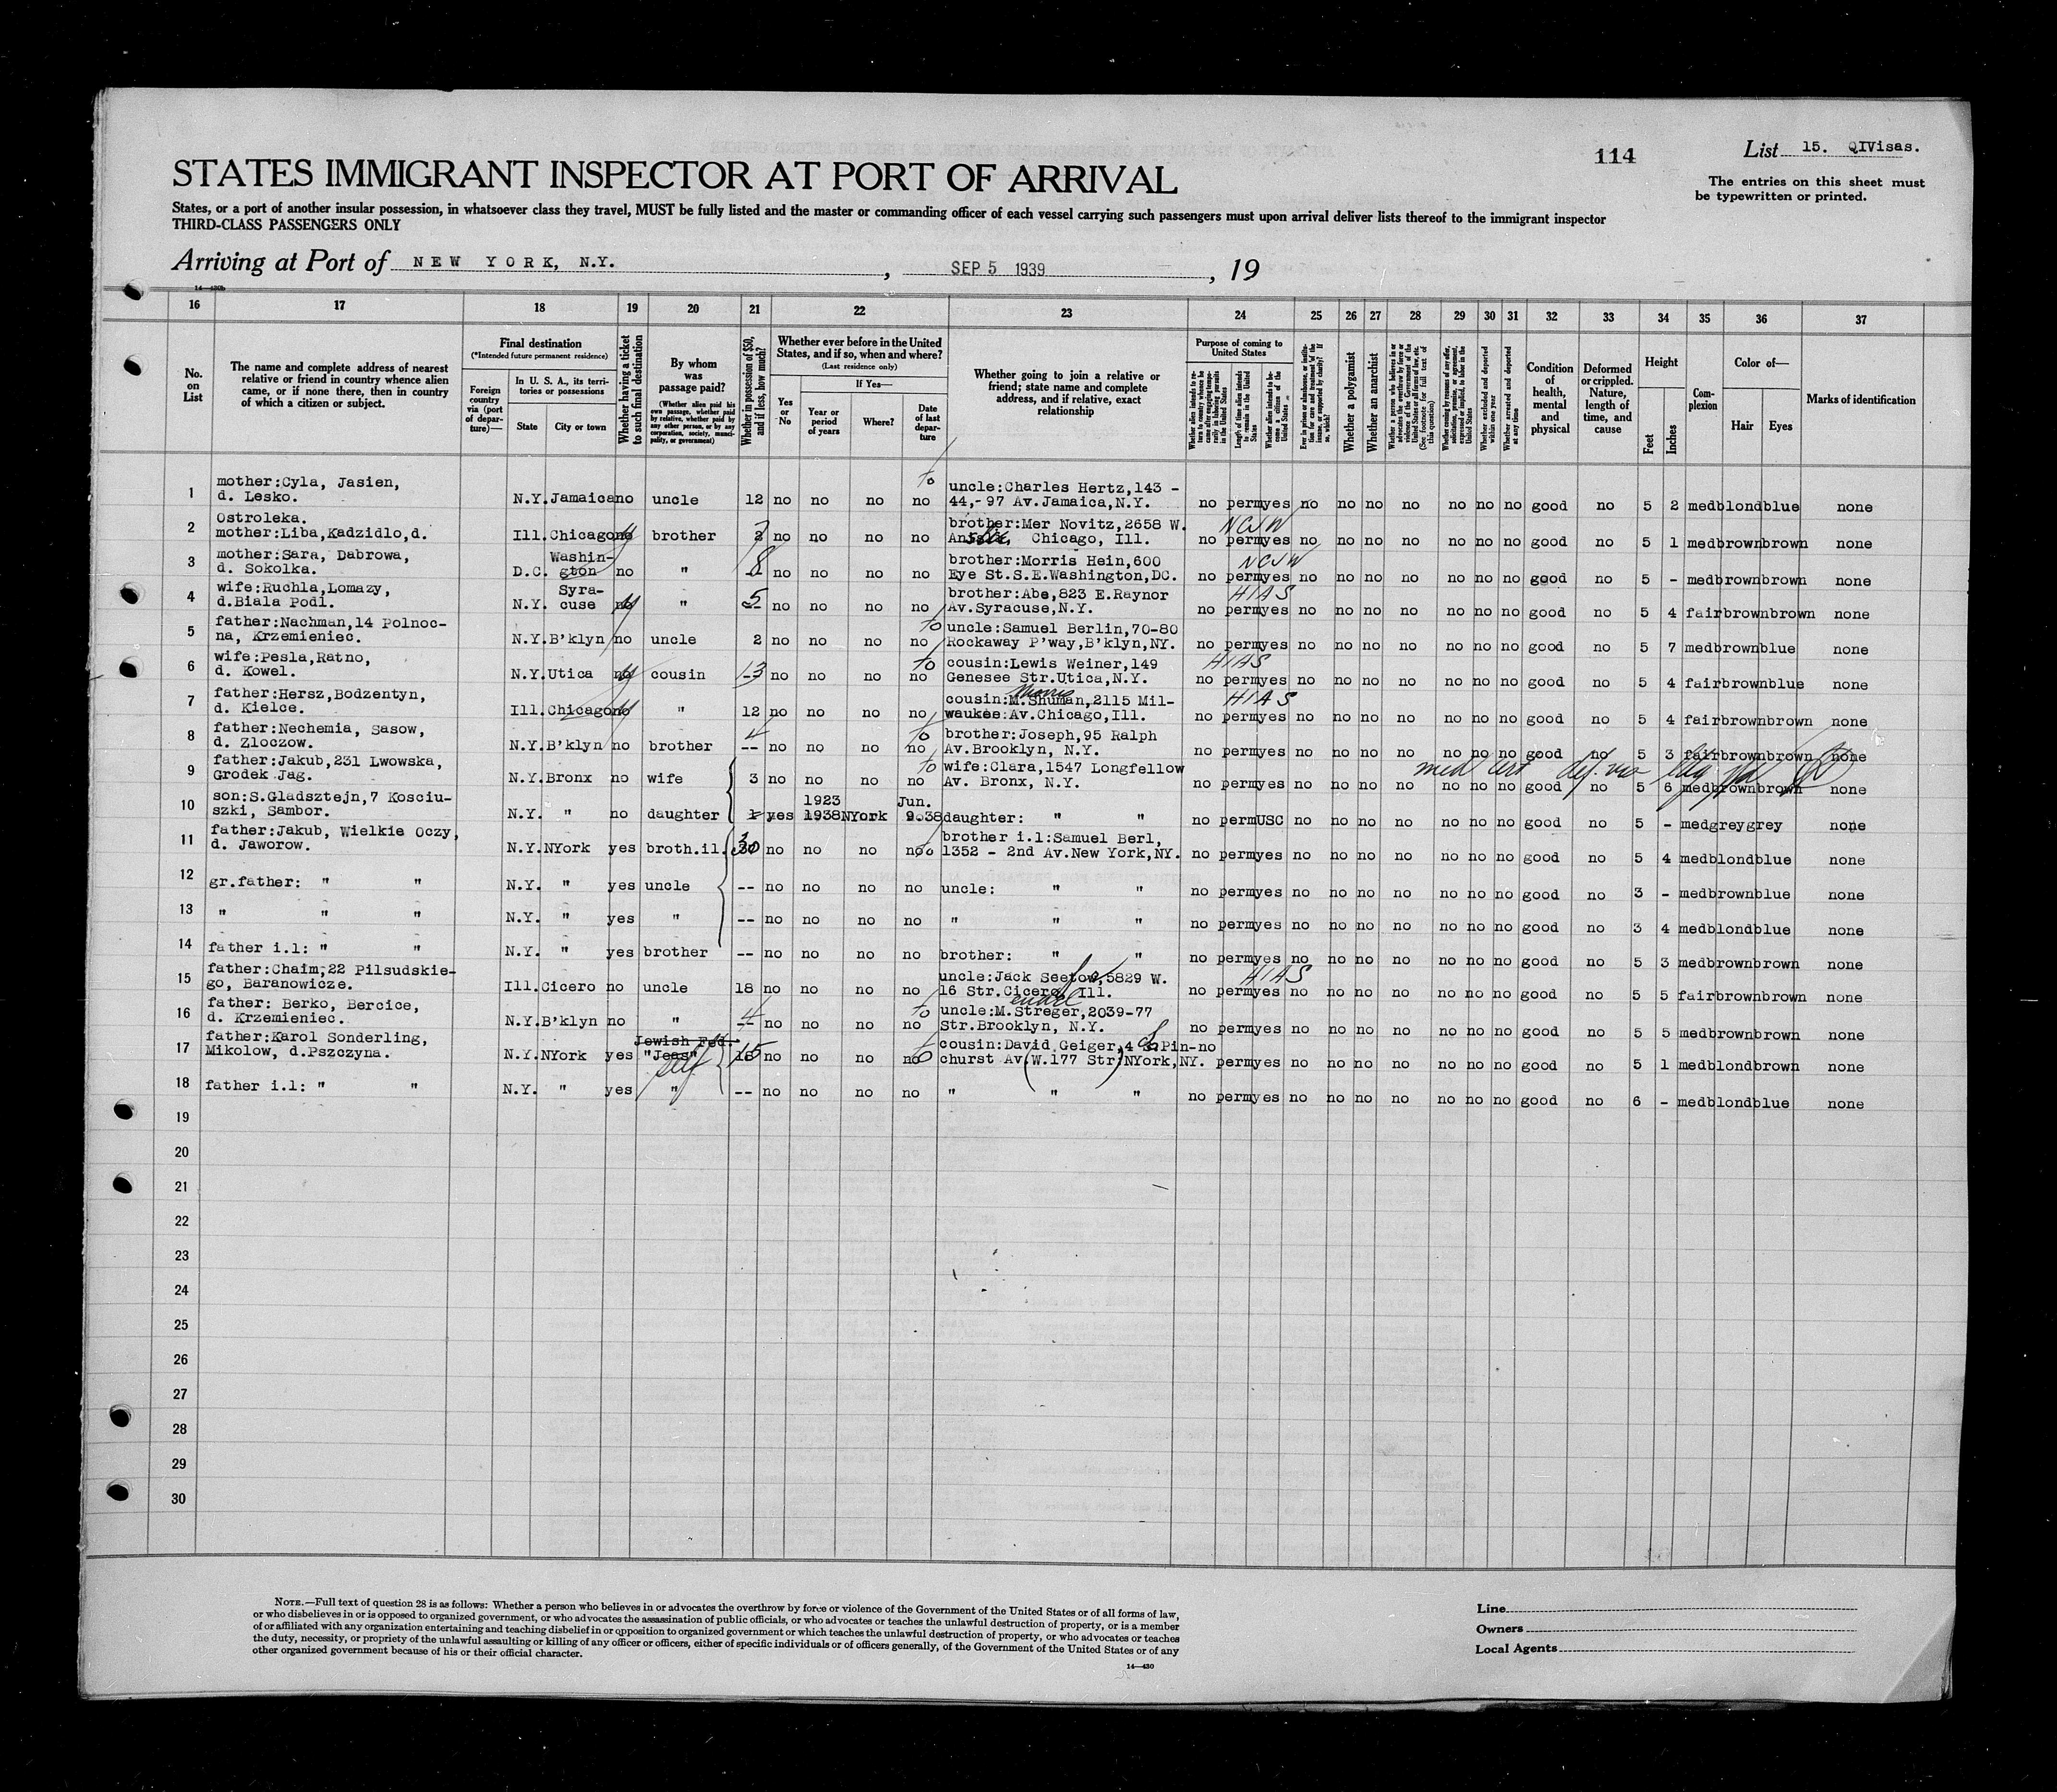 114
List 15. QIVisas.
STATES IMMIGRANT INSPECTOR AT PORT OF ARRIVAL
The entries on this sheet must
be typewritten or printed.
States, or a port of another insular possession, in whatsoever class they travel, MUST be fully listed and the master or commanding officer of each vessel carrying such passengers must upon arrival deliver lists thereof to the immigrant inspector
THIRD-CLASS PASSENGERS ONLY
Arriving at Port of NEW YORK, N.Y. , SEP 5 1939 , 19
14—430b
16 17 18 19 20 21 22 23 24 25 26 27 28 29 30 31 32 33 34 35 36 37
No. on List
The name and complete address of nearest
relative or friend in country whence alien
came, or if none there, then in country
of which a citizen or subject.
Final destination
(*Intended future permanent residence)
Foreign country via (port of departure)—
In U. S. A., its territories or possessions
State
City or town
Whether having a ticket to such final destination
By whom was passage paid?
(Whether alien paid his own passage, whether paid by relative, whether paid by any other person, or by any corporation, society, municipality, or government)
Whether in possession of $50, and if less, how much?
Whether ever before in the United
States, and if so, when and where?
(Last residence only)
Yes or No
If Yes—
Year or period of years
Where?
Date of last departure
Whether going to join a relative or
friend; state name and complete
address, and if relative, exact
relationship
Purpose of coming to United States
Length of time alien intends to remain in the United States
Whether alien intends to become a citizen of the United States
Whether a polygamist
Whether an anarchist
Whether excluded and deported within one year
Whether arrested and deported at any time
Condition of health, mental and physical
Deformed or crippled. Nature, length of time, and cause
Height
Feet
Inches
Complexion
Color of—
Hair
Eyes
Marks of identification
1 mother:Cyla, Jasien,
d. Lesko. N.Y. Jamaica no uncle 12 no no no no to uncle:Charles Hertz,143 -
44,-97 Av.Jamaica,N.Y. no perm yes no no no no no no no good no 5 2 med blond blue none
2 Ostroleka.
mother:Liba,Kadzidlo,d. Ill. Chicago no brother no no no no brother:Mer Novitz,2658 W.
Chicago, Ill. NCJW no perm yes no no no no no no no good no 5 1 med brown brown none
3 mother:Sara, Dabrowa,
d. Sokolka. D.C. Washin-
gton no " 8 no no no no brother:Morris Hein,600
Eye St.S.E.Washington,DC. NCJW no perm yes no no no no no no no good no 5 - med brown brown none
4 wife:Ruchla,Lomazy,
d.Biala Podl. N.Y. Syra-
cuse no " 5 no no no no brother:Abe,823 E.Raynor
Av.Syracuse,N.Y. HIAS no perm yes no no no no no no no good no 5 4 fair brown brown none
5 father:Nachman,14 Polnoc-
na, Krzemieniec. N.Y. B'klyn no uncle 2 no no no no to uncle:Samuel Berlin,70-80
Rockaway P'way,B'klyn,NY. no perm yes no no no no no no no good no 5 7 med brown blue none
6 wife:Pesla,Ratno,
d. Kowel. N.Y. Utica no cousin 13 no no no no to cousin:Lewis Weiner,149
Genesee Str.Utica,N.Y. HIAS no perm yes no no no no no no no good no 5 4 fair brown blue none
7 father:Hersz,Bodzentyn,
d. Kielce. Ill. Chicago no " 12 no no no no Morris
cousin:M.Shuman,2115 Mil-
waukee:Av.Chicago,Ill. HIAS no perm yes no no no no no no no good no 5 4 fair brown brown none
8 father:Nechemia, Sasow,
d. Zloczow. N.Y. B'klyn no brother 4 -- no no no no to brother:Joseph,95 Ralph
Av.Brooklyn, N.Y. no perm yes no no no no no no no good no 5 3 fair brown brown none
med cert def. vis
9 father:Jakub,231 Lwowska,
Grodek Jag. N.Y. Bronx no wife 3 no no no no to wife:Clara,1547 Longfellow
Av. Bronx, N.Y. no perm yes no no no no no no no good no 5 6 med brown brown none
10 son:S.Gladsztejn,7 Kosciu-
szki, Sambor. N.Y. " no daughter yes 1923
1938 NYork Jun.
9.38 daughter: " " no perm USC no no no no no no no good no 5 - med grey grey none
11 father:Jakub, Wielkie Oczy,
d. Jaworow. N.Y. NYork yes broth.il. 30 no no no no to brother i.l:Samuel Berl,
1352 - 2nd Av.New York,NY. no perm yes no no no no no no no good no 5 4 med blond blue none
12 gr.father: " " N.Y. " yes uncle -- no no no no uncle: " " no perm yes no no no no no no no good no 3 - med brown blue none
13 " " " N.Y. " yes " -- no no no no " " " no perm yes no no no no no no no good no 3 4 med blond blue none
14 father i.l: " " N.Y. " yes brother -- no no no no brother: " " no perm yes no no no no no no no good no 5 3 med brown brown none
15 father:Chaim,22 Pilsudskie-
go, Baranowicze. Ill. Cicero no uncle 18 no no no no uncle:Jack Seefow,5829 W.
16 Str.Cicero, Ill. HIAS no perm yes no no no no no no no good no 5 5 fair brown brown none
16 father: Berko, Bercice,
d. Krzemieniec. N.Y. B'klyn no " 4 -- no no no no to uncle:M.Streger,2039-77
Str.Brooklyn, N.Y. no perm yes no no no no no no no good no 5 5 med brown brown none
17 father:Karol Sonderling,
Mikolow, d.Pszczyna. N.Y. NYork yes Jewish Fed.
"Jeas" self 15 no no no no to cousin:David Geiger,4 Pin-
churst Av(W.177 Str)NYork,NY. no perm yes no no no no no no no good no 5 1 med blond brown none
18 father i.l: " " N.Y. " yes " -- no no no no " " " no perm yes no no no no no no no good no 6 - med blond blue none
19
20
21
22
23
24
25
26
27
28
29
30
NOTE.—Full text of question 28 is as follows: Whether a person who believes in or advocates the overthrow by force or violence of the Government of the United States or of all forms of law,
or who disbelieves in or is opposed to organized government, or who advocates the assassination of public officials, or who advocates or teaches the unlawful destruction of property, or is a member
of or affiliated with any organization entertaining and teaching disbelief in or opposition to organized government or which teaches the unlawful destruction of property, or who advocates or teaches
the duty, necessity, or propriety of the unlawful assaulting or killing of any officer or officers, either of specific individuals or of officers generally, of the Government of the United States or of any
other organized government because of his or their official character.
14—430
Line
Owners
Local Agents